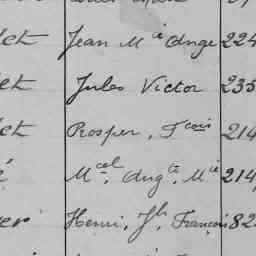 et Jean Mie Ange 224
et Jules Victor 235
et Prosper, Fçois 214
é Mcel. Augte. Mie 214
er Henri, Jh, François 82